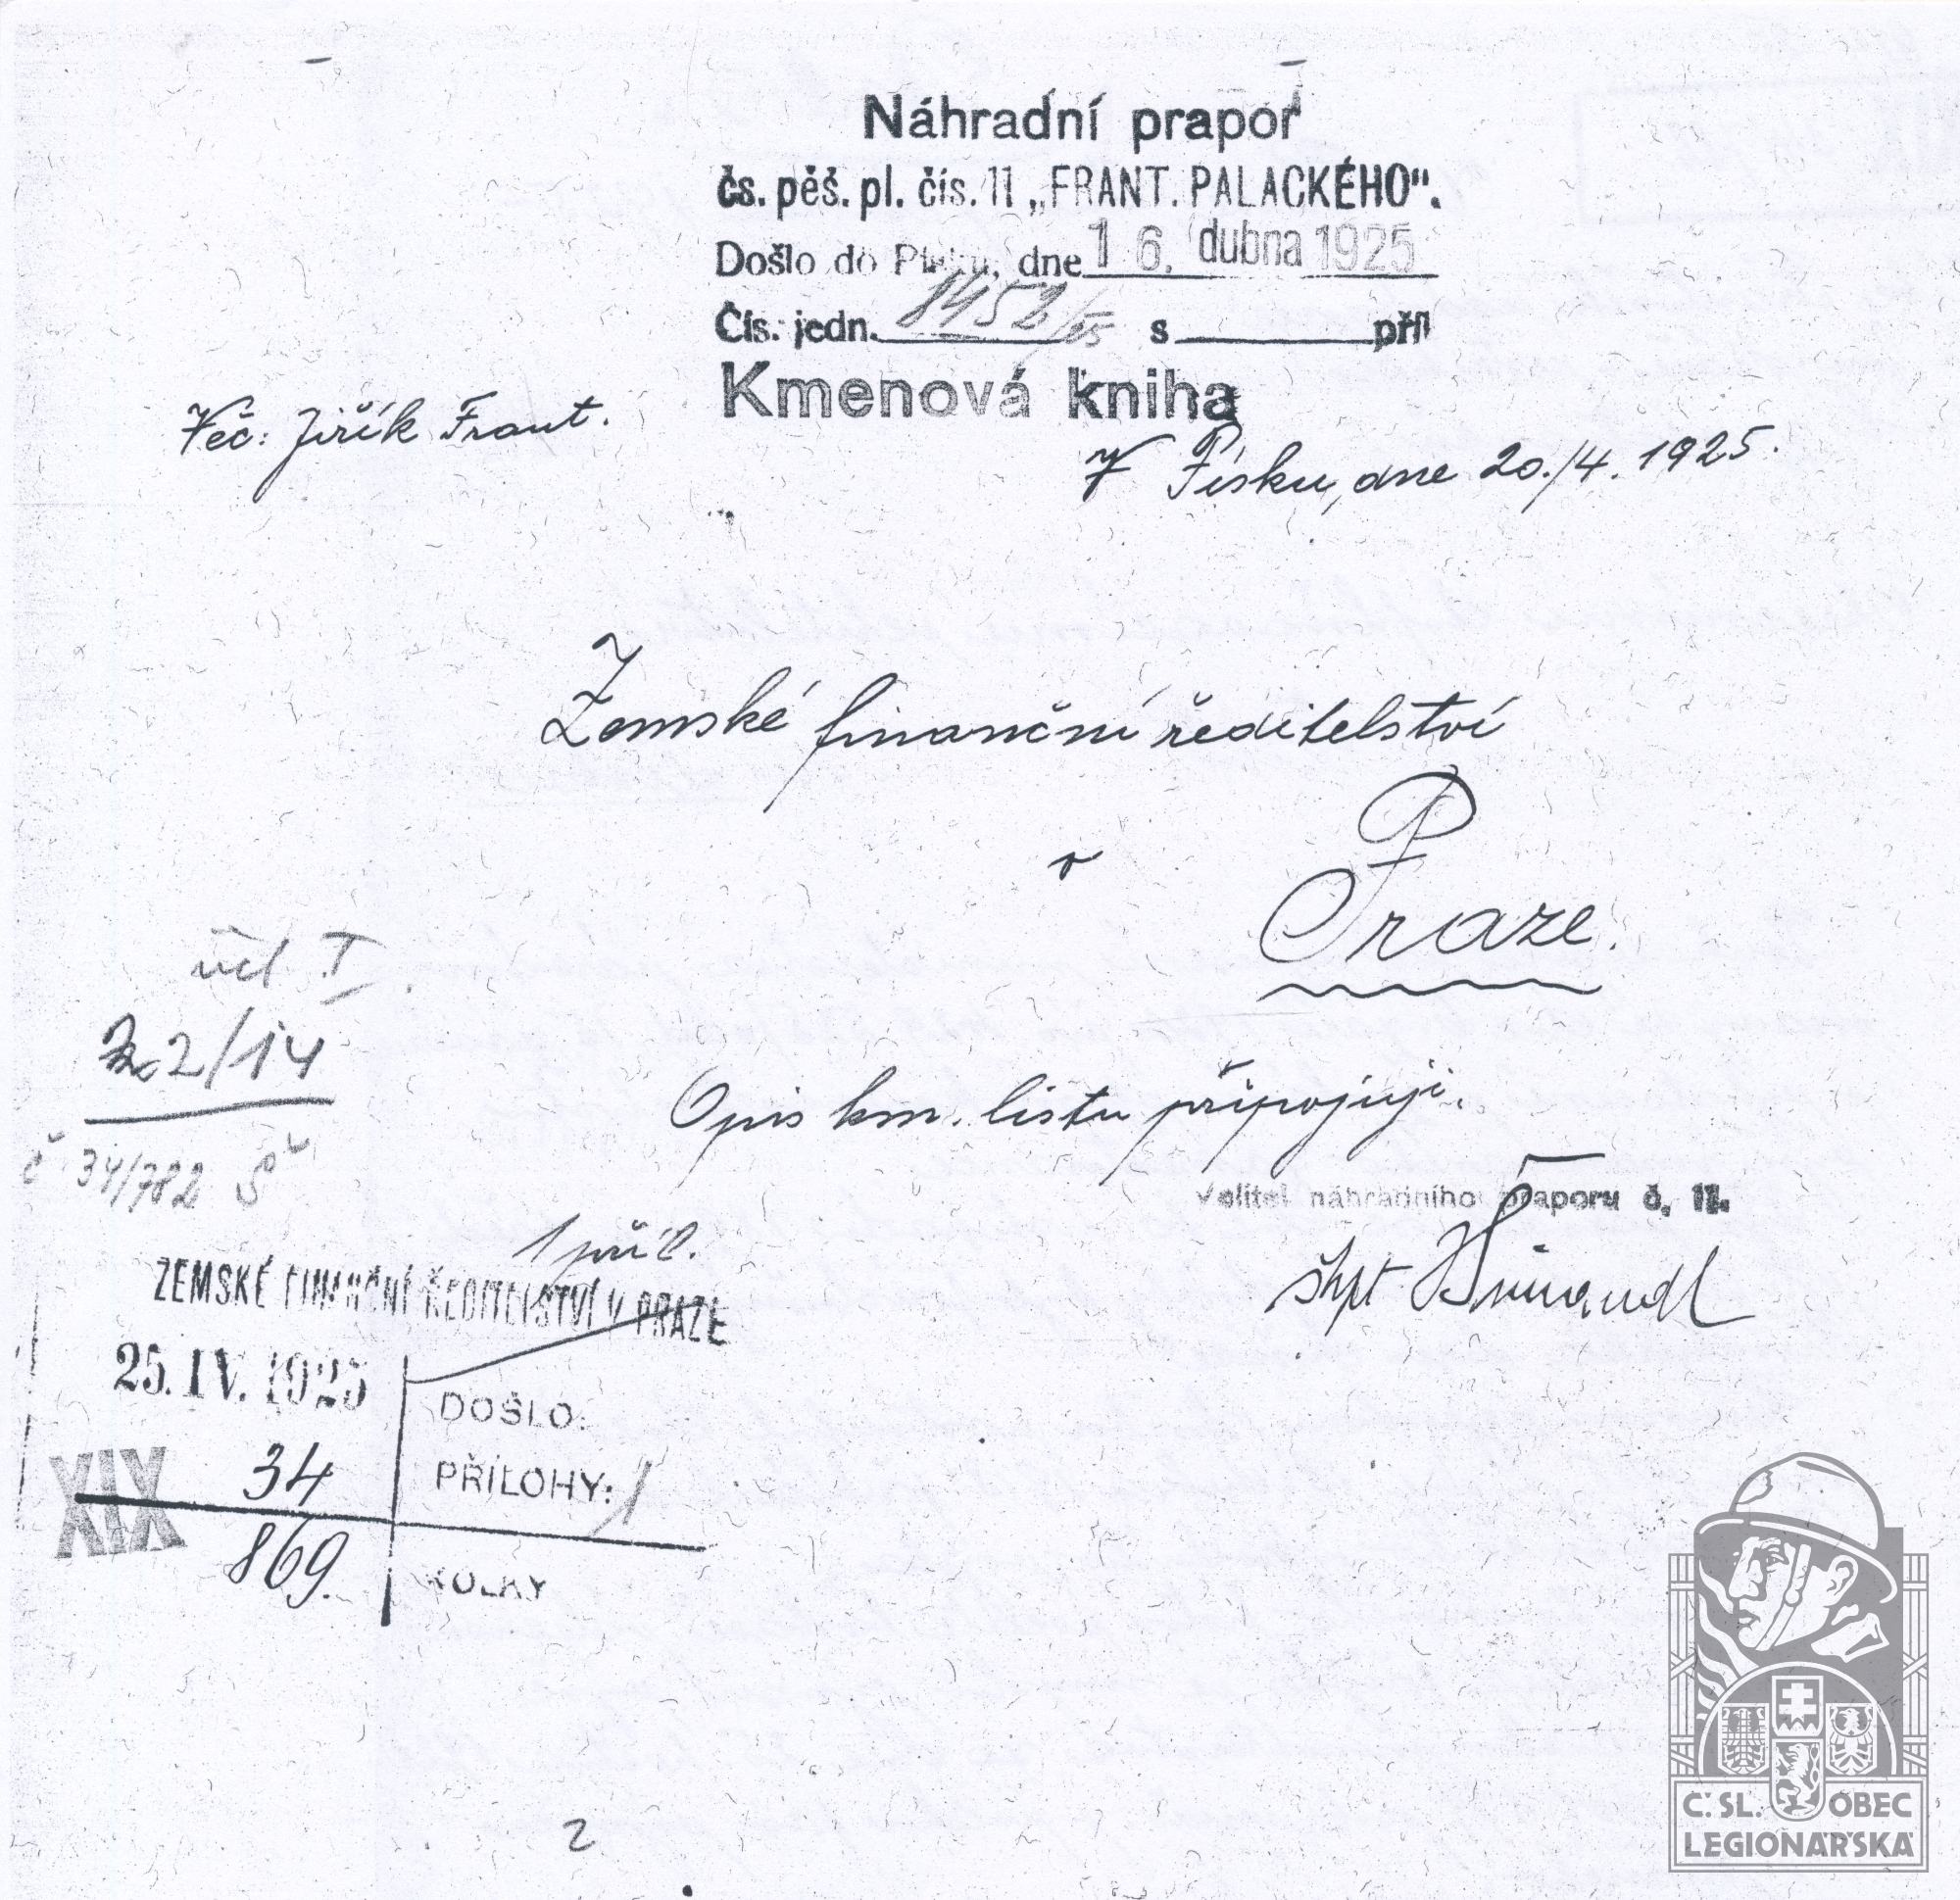 Náhradní prapor
čs. pěš. pl. čís. 11 „FRANT. PALACKÉHO".
Došlo do Písku, dne 16. dubna 1925
Čís. jedn. 8452/25 s příl
Kmenová kniha
Věc: Jiřík Frant.
V Písku, dne 20./4. 1925.
Zemské finanční ředitelství
v
Praze.
účt I.
2/14
č 34/782 Š
Opis km. listu připojuji.
Velitel náhradního praporu č. 11.
škpt
1 příl.
ZEMSKÉ FINANČNÍ ŘEDITELSTVÍ V PRAZE
25. IV. 1925
DOŠLO:
XIX
34
PŘÍLOHY: 1
869.
KOLKY
2
Č. SL. OBEC
LEGIONÁŘSKÁ